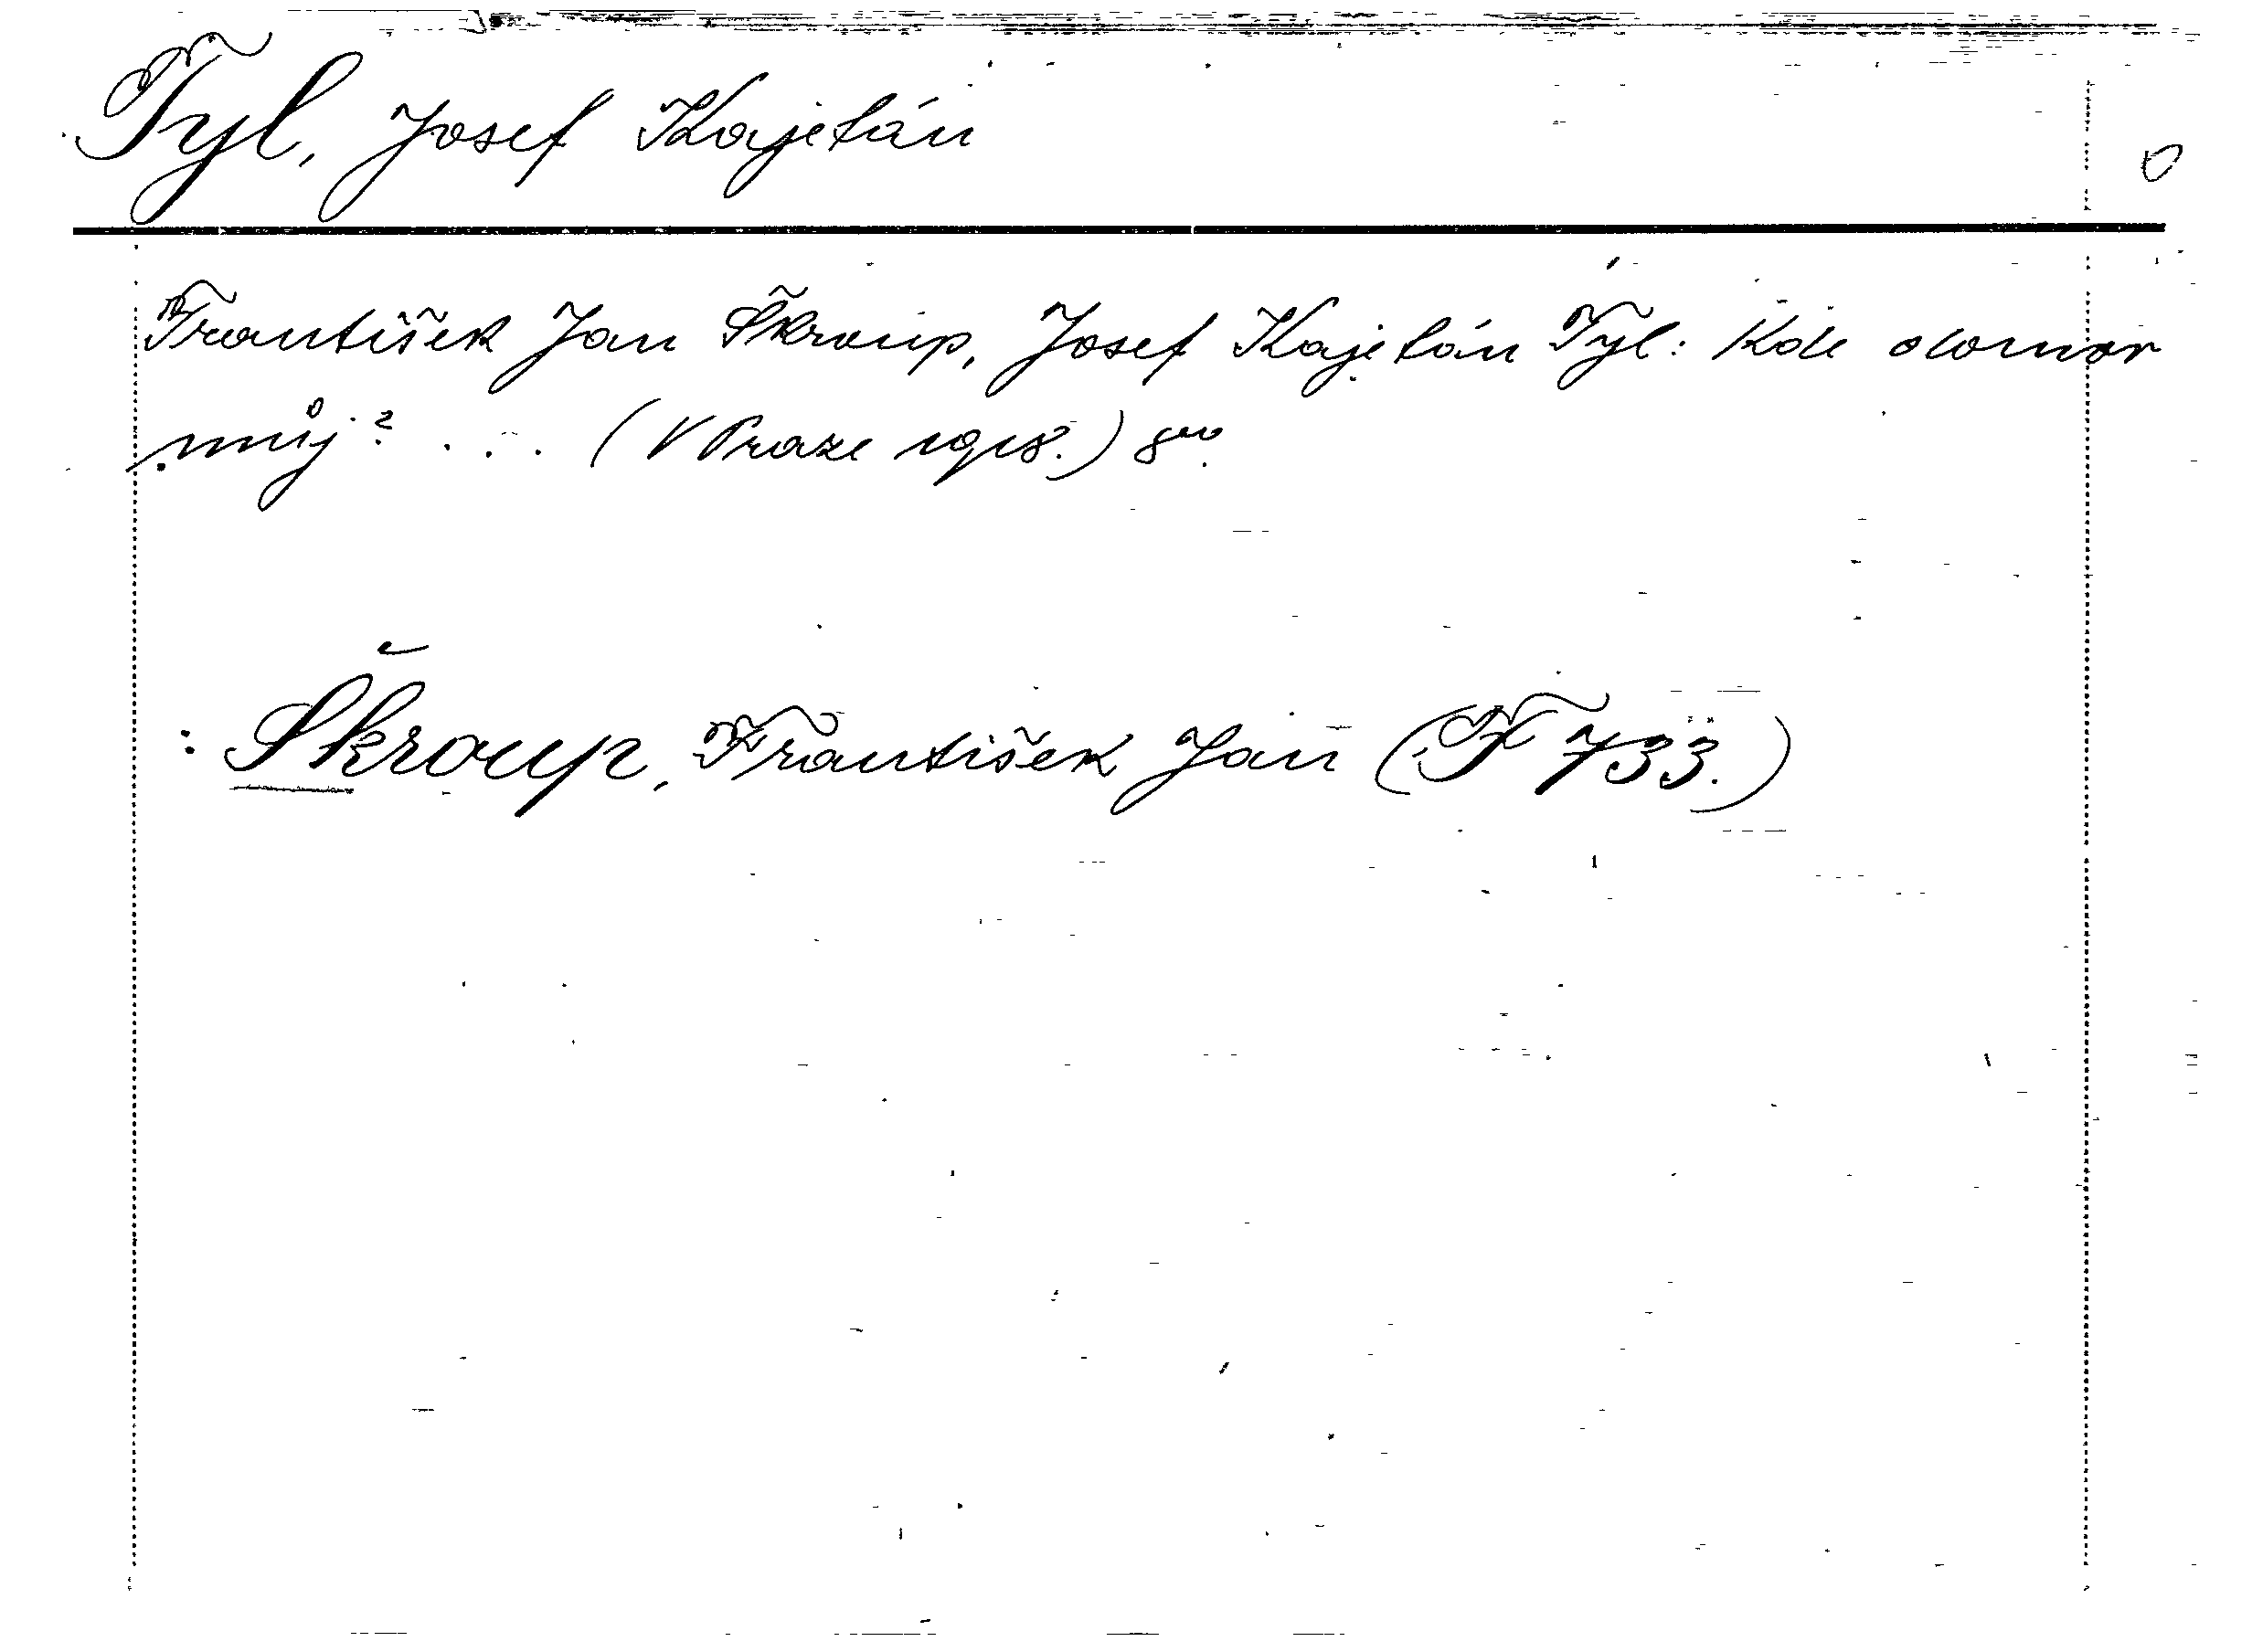 Tyl, Josef Kajetán
František Jan Škroup, Josef Kajetán Tyl: Kde domov
můj? ... (V Praze 1918.) 8vo.
: Škroup, František Jan (F 733.)